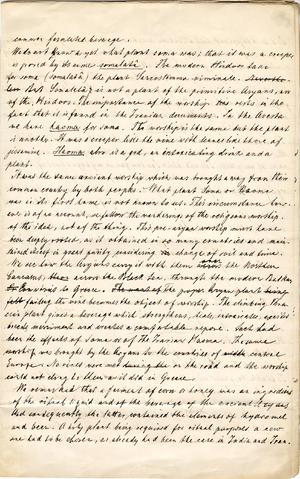 common fermented beverage.
We do not know as yet what plant soma was; that it was a creeper,
is proved by its name somalatâ. The modern Hindoos take
for soma (somalatâ) the plant Sarcostemma viminale.
But Somalatâ is not a plant of the primitive Aryans, nor
of the Hindoos. The importance of the worship rests in the
fact that is found in the Iranian documents. In the Avesta
we have haoma for soma. The worship is the same but the plant
is another. It was a creeper like the vine with leaves like those of
jessamine. Haoma also is a god, an intoxicating drink and a
plant.
It was the same ancient worship which was brought away from their
common country by both people. What plant Soma or Haoma
was in its first home is not known to us. This circumstance
is of no account, we follow the wanderings of the religious worship
of the idea, not of the thing. This pre-aryan worship must have
been deeply rooted, as it obtained in so many countries and main-
tained itself in great purity, considering change of soil and time.
We see how the Aryans carry it with them over the Northern
Caucasus, across the Black Sea, through the
to Greece. The of the proper Aryan plant being
failing the vine becomes the object of worship. The climbing Thra-
cian plant gives a beverage which strengthens, heals, intoxicates, excites
bloody movement and wishes a comfortable repose. Such had
been the effects of Soma or of the Iranian Haoma. The same
worship was brought by the Aryans to the countries of central
Europe. No vines were met on the road and the worship
could not cling to them as it did in Greece.
We consider that a ferment of corn or honey was an ingredient
of the ritual liquid and of the beverage of the ancient Aryans
and consequently the latter contained the elements of hydromel
and beer. A holy plant being required for ritual purposes a new
one had to be chosen, as already had been the case in India and Iran.